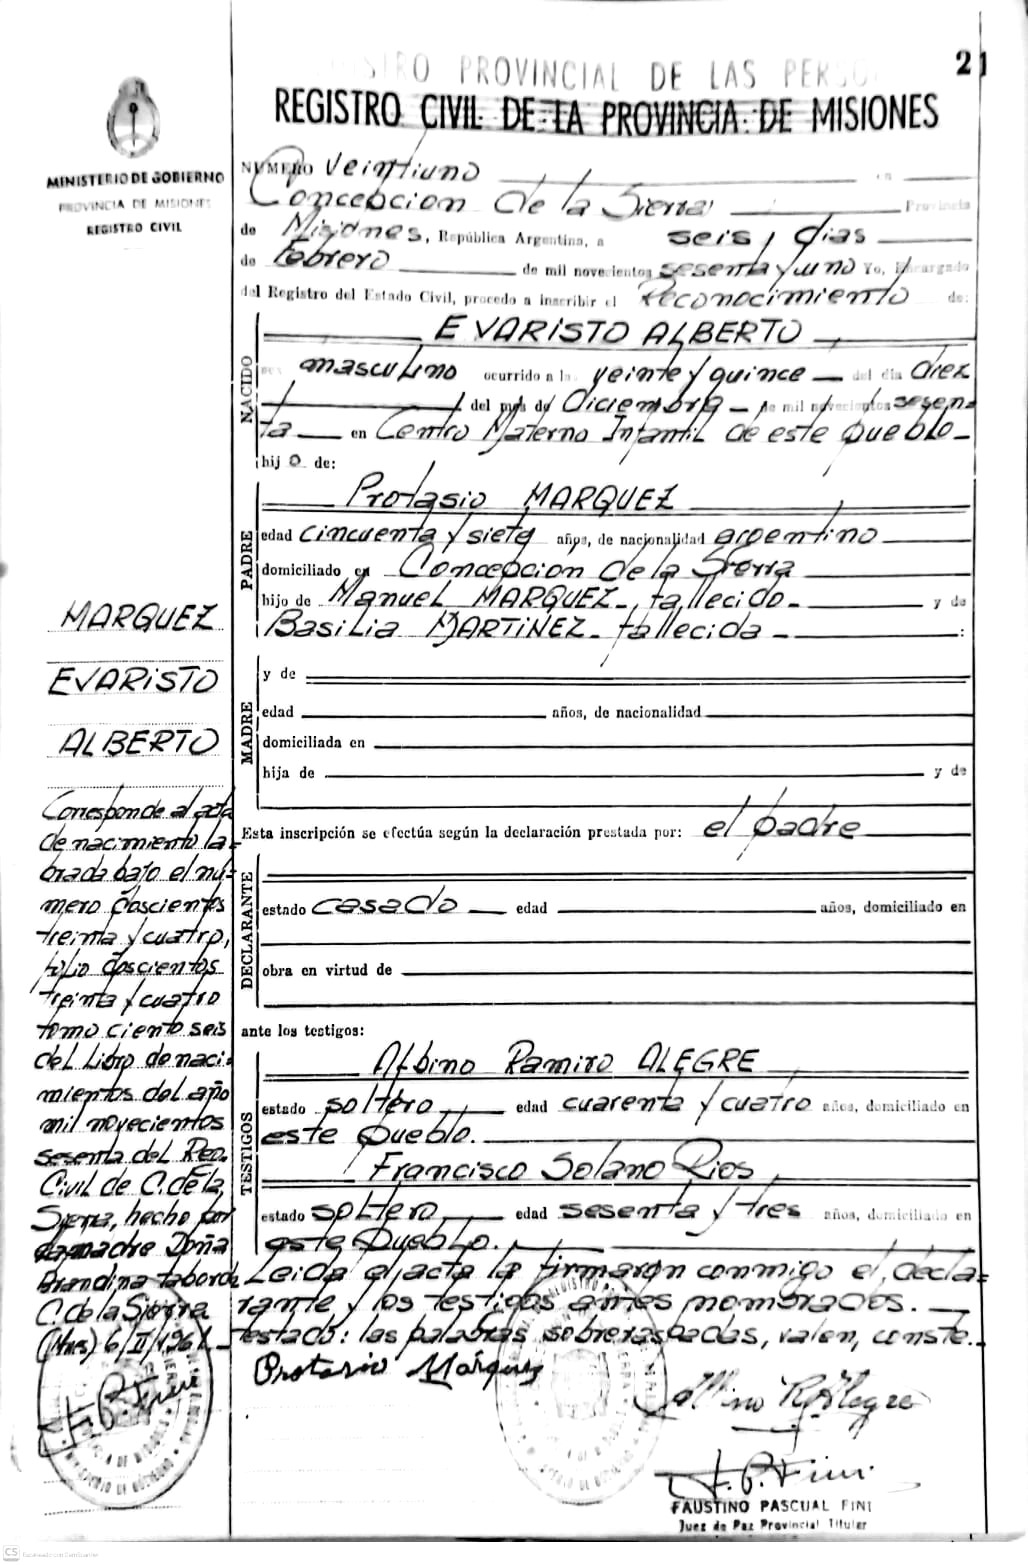 21
REGISTRO PROVINCIAL DE LAS PERSO
REGISTRO CIVIL DE LA PROVINCIA DE MISIONES
MINISTERIO DE GOBIERNO
PROVINCIA DE MISIONES
REGISTRO CIVIL
NUMERO veintiuno en
Concepcion de la Sierra Provincia
de Misiones, República Argentina, a seis días
de Febrero de mil novecientos sesenta y uno Yo, Encargado
del Registro del Estado Civil, procedo a inscribir el Reconocimiento de:
NACIDO
EVARISTO ALBERTO
sexo masculino ocurrido a las veinte y quince del día diez
del mes de Diciembre de mil novecientos sesen-
ta en Centro Materno Infantil de este pueblo-
hijo de:
PADRE
Protasio MARQUEZ
edad cincuenta y siete años, de nacionalidad argentino
domiciliado en Concepcion de la Sierra
hijo de Manuel MARQUEZ-, fallecido- y de
Basilia MARTINEZ- fallecida-:
MADRE
y de
edad años, de nacionalidad
domiciliada en
hija de y de
Esta inscripción se efectúa según la declaración prestada por: el padre
DECLARANTE
estado casado edad años, domiciliado en
obra en virtud de
ante los testigos:
TESTIGOS
Albino Ramiro ALEGRE
estado soltero edad cuarenta y cuatro años, domiciliado en
este pueblo.
Francisco Solano Rios
estado soltero edad sesenta y tres años, domiciliado en
este pueblo.
Leida el acta la firmaron conmigo el decla-
rante y los testigos antes nombrados.
testado: las palabras sobreraspadas, valen, conste.
Protasio Márquez
Albino R. Alegre
F. P. Fini
FAUSTINO PASCUAL FINI
Juez de Paz Provincial Titular
MARQUEZ
EVARISTO
ALBERTO
Corresponde al acta
de nacimiento la-
brada bajo el nú-
mero doscientos
treinta y cuatro,
folio doscientos
treinta y cuatro
tomo ciento seis
del Libro de naci-
mientos del año
mil novecientos
sesenta del Reg.
Civil de C. de la
Sierra, hecho por
la madre Doña
Taborda
C. de la Sierra
(Mns) 6/II/1961.
F. P. Fini
CS Escaneado con CamScanner